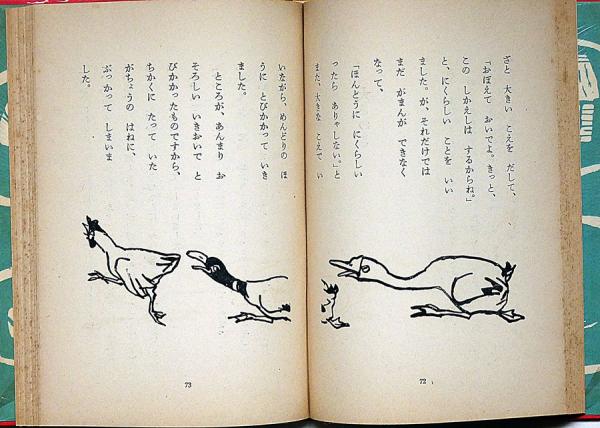 さと 大きい こえを だして、
「おぼえて おいでよ。きっと、
この しかえしは するからね。」
と、にくらしい ことを いい
ました。が、それだけでは
まだ がまんが できなく
なって、
「ほんとうに にくらしい
ったら ありゃ しない。」と
また、大きな こえで い
72
いながら、めんどりの ほ
うに とびかかって いき
ました。
ところが、あんまり お
そろしい いきおいで と
びかかったものですから、
ちかくに たって いた
がちょうの はねに、
ぶっかって しまいま
した。
73